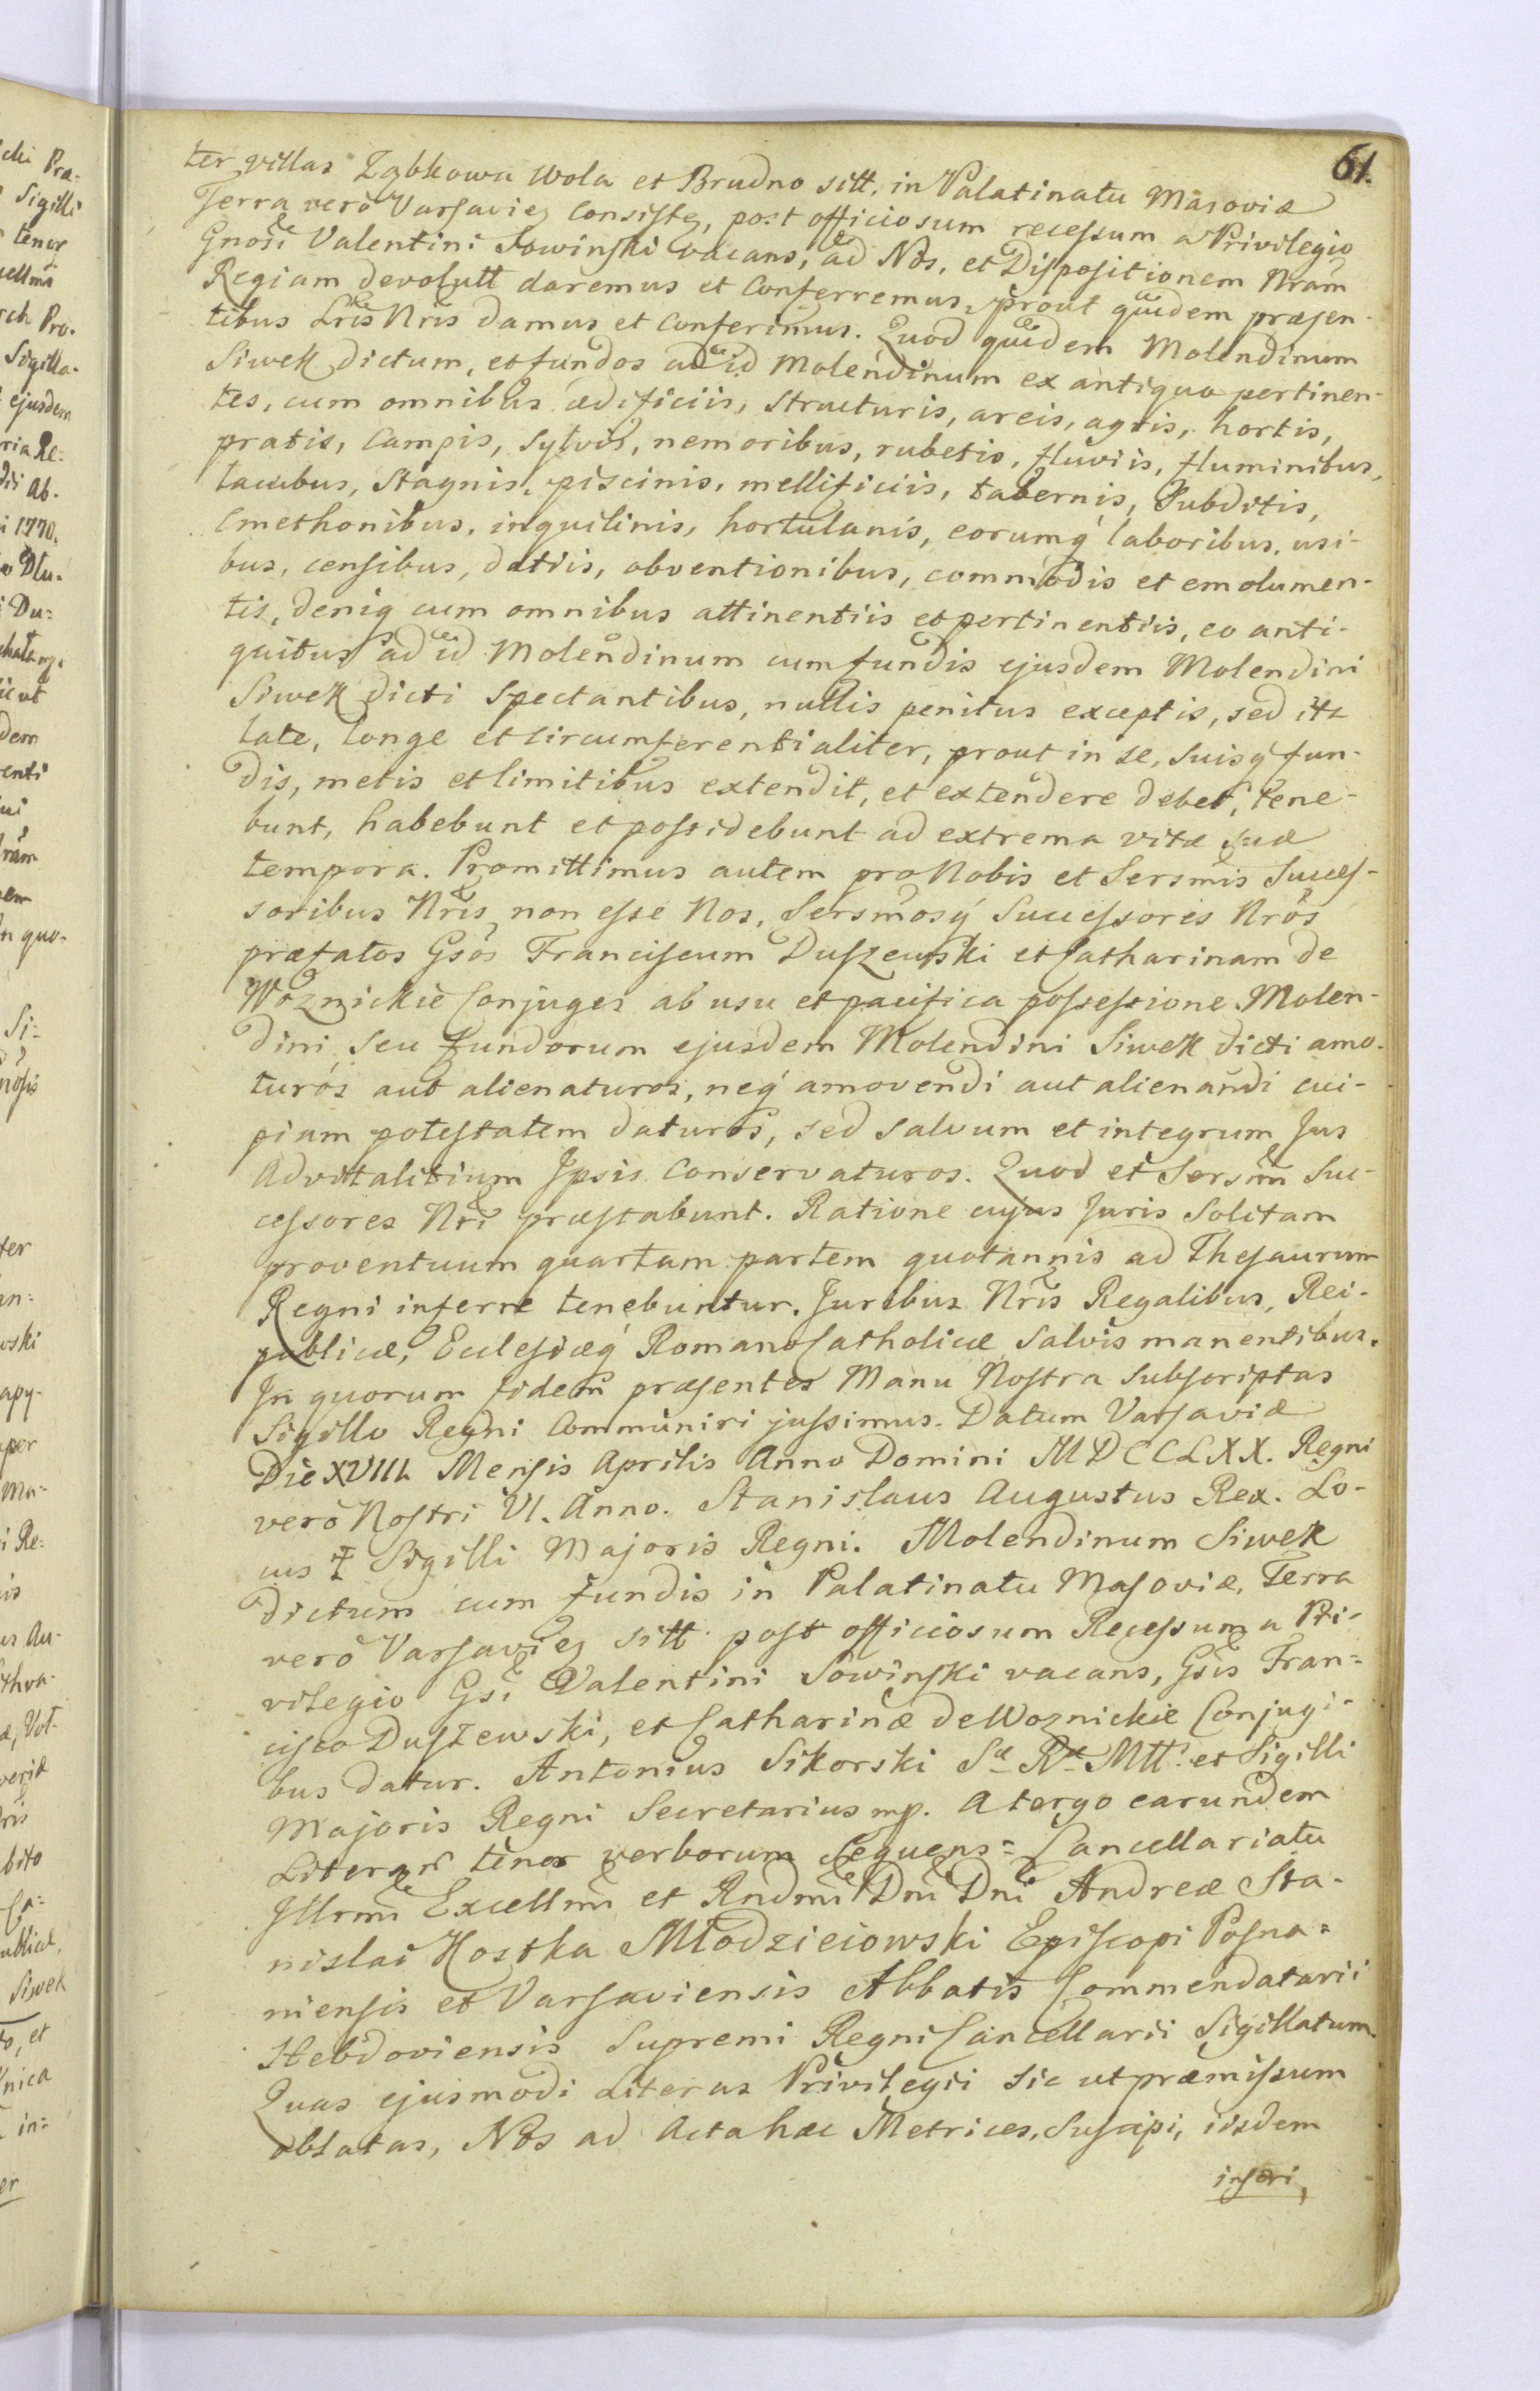 61.
ter villas Ząbkowa Wola et Brudno sitt. in Palatinatu Masoviæ
Terra verò Varsavieñ Consisteñ, post officiosum recessum a Privilegio
Gnosi Valentini Sowinski vacans, ad Nos, et Dispositionem Nram
Regiam devolutt daremus et Conferremus, prout quidem præsen-
tibus Lris Nris damus et Conferimus. Quod quidem Molendinum
Siwek dictum, et fundos ad id Molendinum ex antiquo pertinen-
tes, cum omnibus ædificiis, structuris, areis, agris, hortis,
pratis, Campis, sylvis, nemoribus, rubetis, fluviis, fluminibus,
lacubus, Stagnis, piscinis, mellificiis, tabernis, Subditis,
Cmethonibus, inquilinis, hortulanis, eorumq́ laboribus, usi-
bus, censibus, datiis, obventionibus, commodis et emolumen-
tis, deniq cum omnibus attinentiis et pertinentiis, eo anti-
quitus ad id Molendinum cum fundis ejusdem Molendini
Siwek dicti Spectantibus, nullis penitus exceptis, sed ita
late, longe et circumferentialiter, prout in se, suisq́ fun-
dis, metis et limitibus extendit, et extendere debet, tene-
bunt, habebunt et possidebunt ad extrema vitæ suæ
tempora. Promittimus autem pro Nobis et Sersmis Succes-
soribus Nris, non esse Nos, Sersmosq́ Successores Nros
præfatos Gsos Franciscum Duszewski et Catharinam de
Woznickie Conjuges ab usu et pacifica possessione Molen-
dini seu fundorum ejusdem Molendini Siwek dicti amo-
turos aut alienaturos, neq́ amovendi aut alienandi cui-
piam potestatem daturos, sed salvum et integrum Jus
Advitalitium Ipsis Conservaturos. Quod et Sersmi Suc-
cessores Nri præstabunt. Ratione cujus Juris Solitam
proventuum quartam partem quotannis ad Thesaurum
Regni inferre tenebuntur. Juribus Nris Regalibus, Rei-
publicæ, Ecclesiæq́ Romano Catholicæ salvis manentibus.
In quorum fidem præsentes Manu Nostra subscriptas
Sigillo Regni Communiri jussimus. Datum Varsaviæ
Die XVIII. Mensis Aprilis Anno Domini MDCCLXX. Regni
verò Nostri VI. Anno. Stanislaus Augustus Rex. Lo-
cus ‡ Sigilli Majoris Regni. Molendinum Siwek
dictum cum fundis in Palatinatu Masoviæ, Terra
verò Varsavieñ sitt post officiosum Recessum a Pri-
vilegio Gsi Valentini Sowinski vacans, Gsis Fran-
cisco Duszewski, et Catharinæ de Woznickie Conjugi-
bus datur. Antonius Sikorski Sæ Ræ Mtt. et Sigilli
Majoris Regni Secretarius mp. A tergo earundem
Literarũ tenor verborum sequens = Cancellariatu
Illrmi Excellmi et Rndmi Dni Dni Andreæ Sta-
nislai Kostka Młodzieiowski Episcopi Posna=
niensis et Varsaviensis Abbatis Commendatarii
Hebdoviensis Supremi Regni Cancellarii Sigillatum.
Quas ejusmodi Literas Privilegii sic ut præmissum
oblatas, Nos ad Acta hæc Metrices, Suscipi, iisdem
inseri,